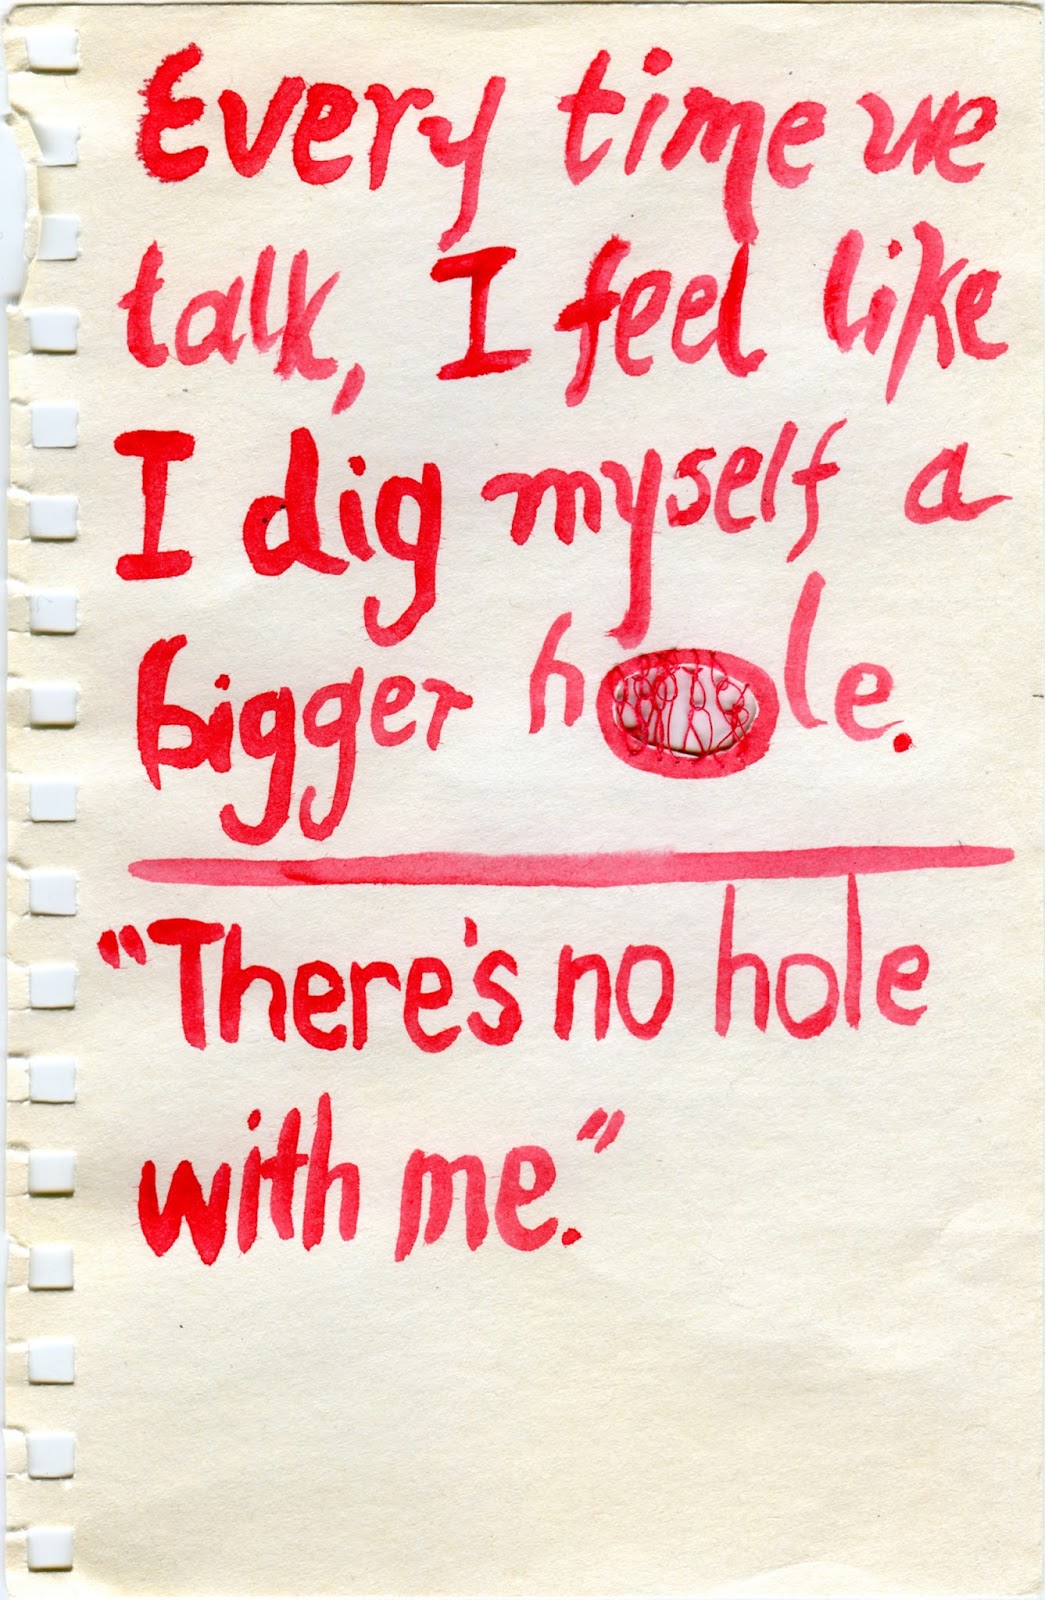 Every time we
talk, I feel like
I dig myself a
bigger hole.
"There's no hole
with me."